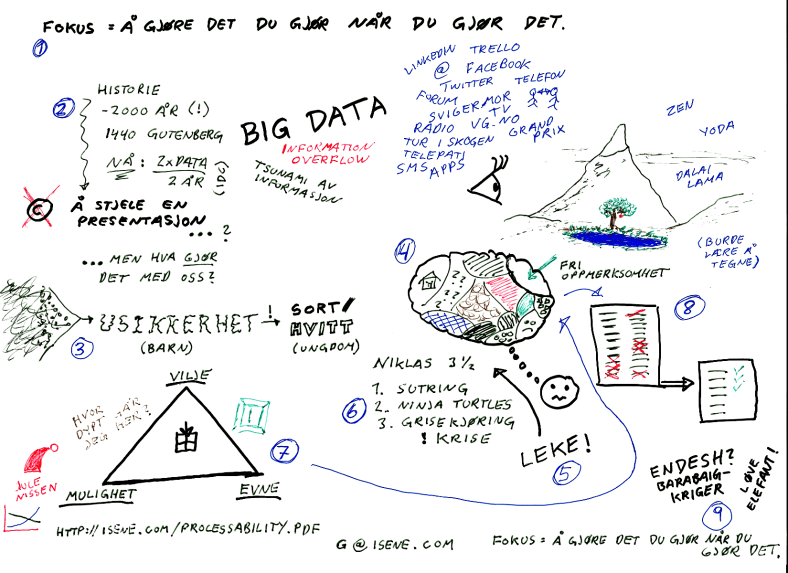 FOKUS = Å GJØRE DET DU GJØR NÅR DU GJØR DET.
1
2
HISTORIE
-2000 ÅR (!)
1440 GUTENBERG
NÅ: 2xDATA
2 ÅR
(IDC)
BIG DATA
INFORMATION
OVERFLOW
TSUNAMI AV
INFORMASJON
C
Å STJELE EN
PRESENTASJON
...?
... MEN HVA GJØR
DET MED OSS?
3
USIKKERHET
(BARN)
!
SORT/
HVITT
(UNGDOM)
LINKEDIN TRELLO
@ FACEBOOK
TWITTER TELEFON
FORUM
SVIGERMOR
TV
RADIO VG.NO GRAND
PRIX
TUR I SKOGEN
TELEPATI
SMS APPS
ZEN
YODA
DALAI
LAMA
(BURDE
LÆRE Å
TEGNE)
4
FRI
OPPMERKSOMHET
8
NIKLAS 3 1/2
6
1. SUTRING
2. NINJA TURTLES
3. GRISEKJØRING
! KRISE
LEKE!
5
VILJE
HVOR
DYPT NÅR
JEG NED?
7
JULE
NISSEN
MULIGHET
EVNE
HTTP://ISENE.COM/PROCESSABILITY.PDF
G@ISENE.COM
ENDESH?
BARABAIG-
KRIGER
LØVE
ELEFANT!
9
FOKUS = Å GJØRE DET DU GJØR NÅR DU
GJØR DET.